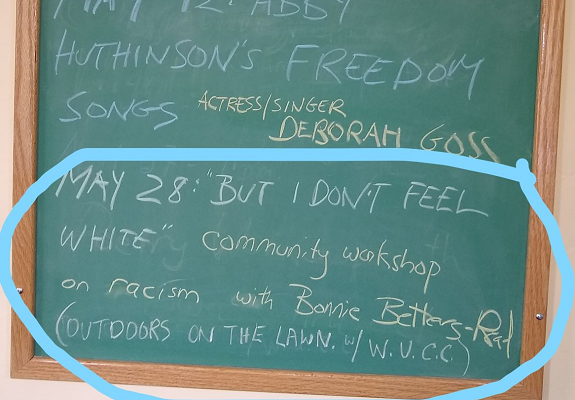 MAY 12: ABBY
HUTHINSON'S FREEDOM
SONGS ACTRESS/SINGER
DEBORAH GOSS
MAY 28: "BUT I DON'T FEEL
WHITE" community workshop
on racism with Bonnie Betters-Reed
(OUTDOORS ON THE LAWN. w/ W.U.C.C.)